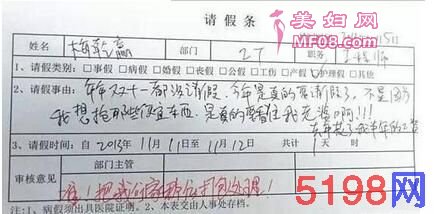 请假条
美妇网
MF08.com
姓名 梅乾赢 部门 IT 职务 工程师
1、请假类别: □事假 □病假 □婚假 □丧假 □公假 □工伤 □产假 □护理假 □其他
2、请假事由: 年年双十一都没请假,今年是真的要请假了,不是因为
我想抢那些便宜东西,是真的要看住我老婆啊!!!
去年花了我半年的工资
3、请假时间:自2013年11月11日至11月12日 共计 1天 时
审核意见
部门主管
准!把我们家那位打包处理!
注:1、病假须出具医院证明。2、本表交由人事处存档。
5198网